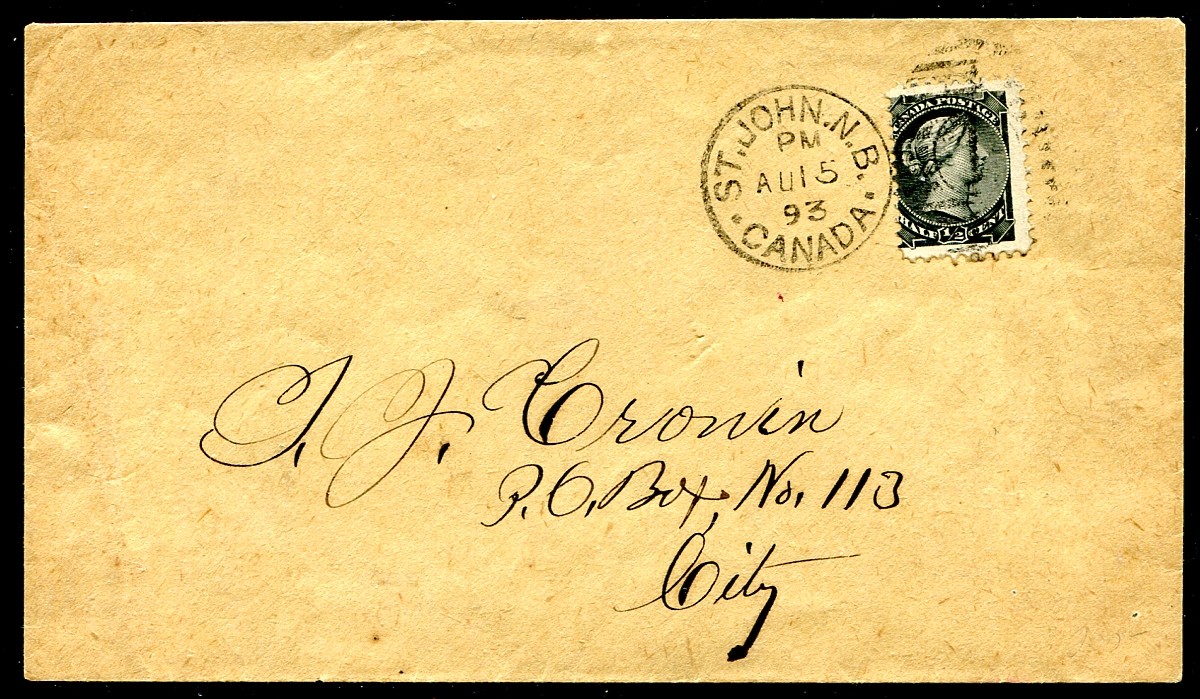 ST. JOHN. N. B.
PM
AU 15
93
CANADA
CANADA POSTAGE
HALF 1/2 CENT
J. J. Cronin
P. O. Box, No. 113
City